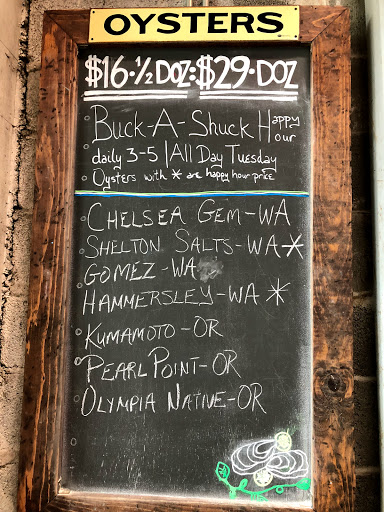 OYSTERS
$16·½ DOZ:$29·DOZ
Buck-A-Shuck Happy Hour
daily 3-5 | All Day Tuesday
Oysters with * are happy hour price
CHELSEA GEM-WA
SHELTON SALTS-WA*
GOMEZ-WA
HAMMERSLEY-WA *
KUMAMOTO-OR
PEARL POINT-OR
OLYMPIA NATIVE-OR